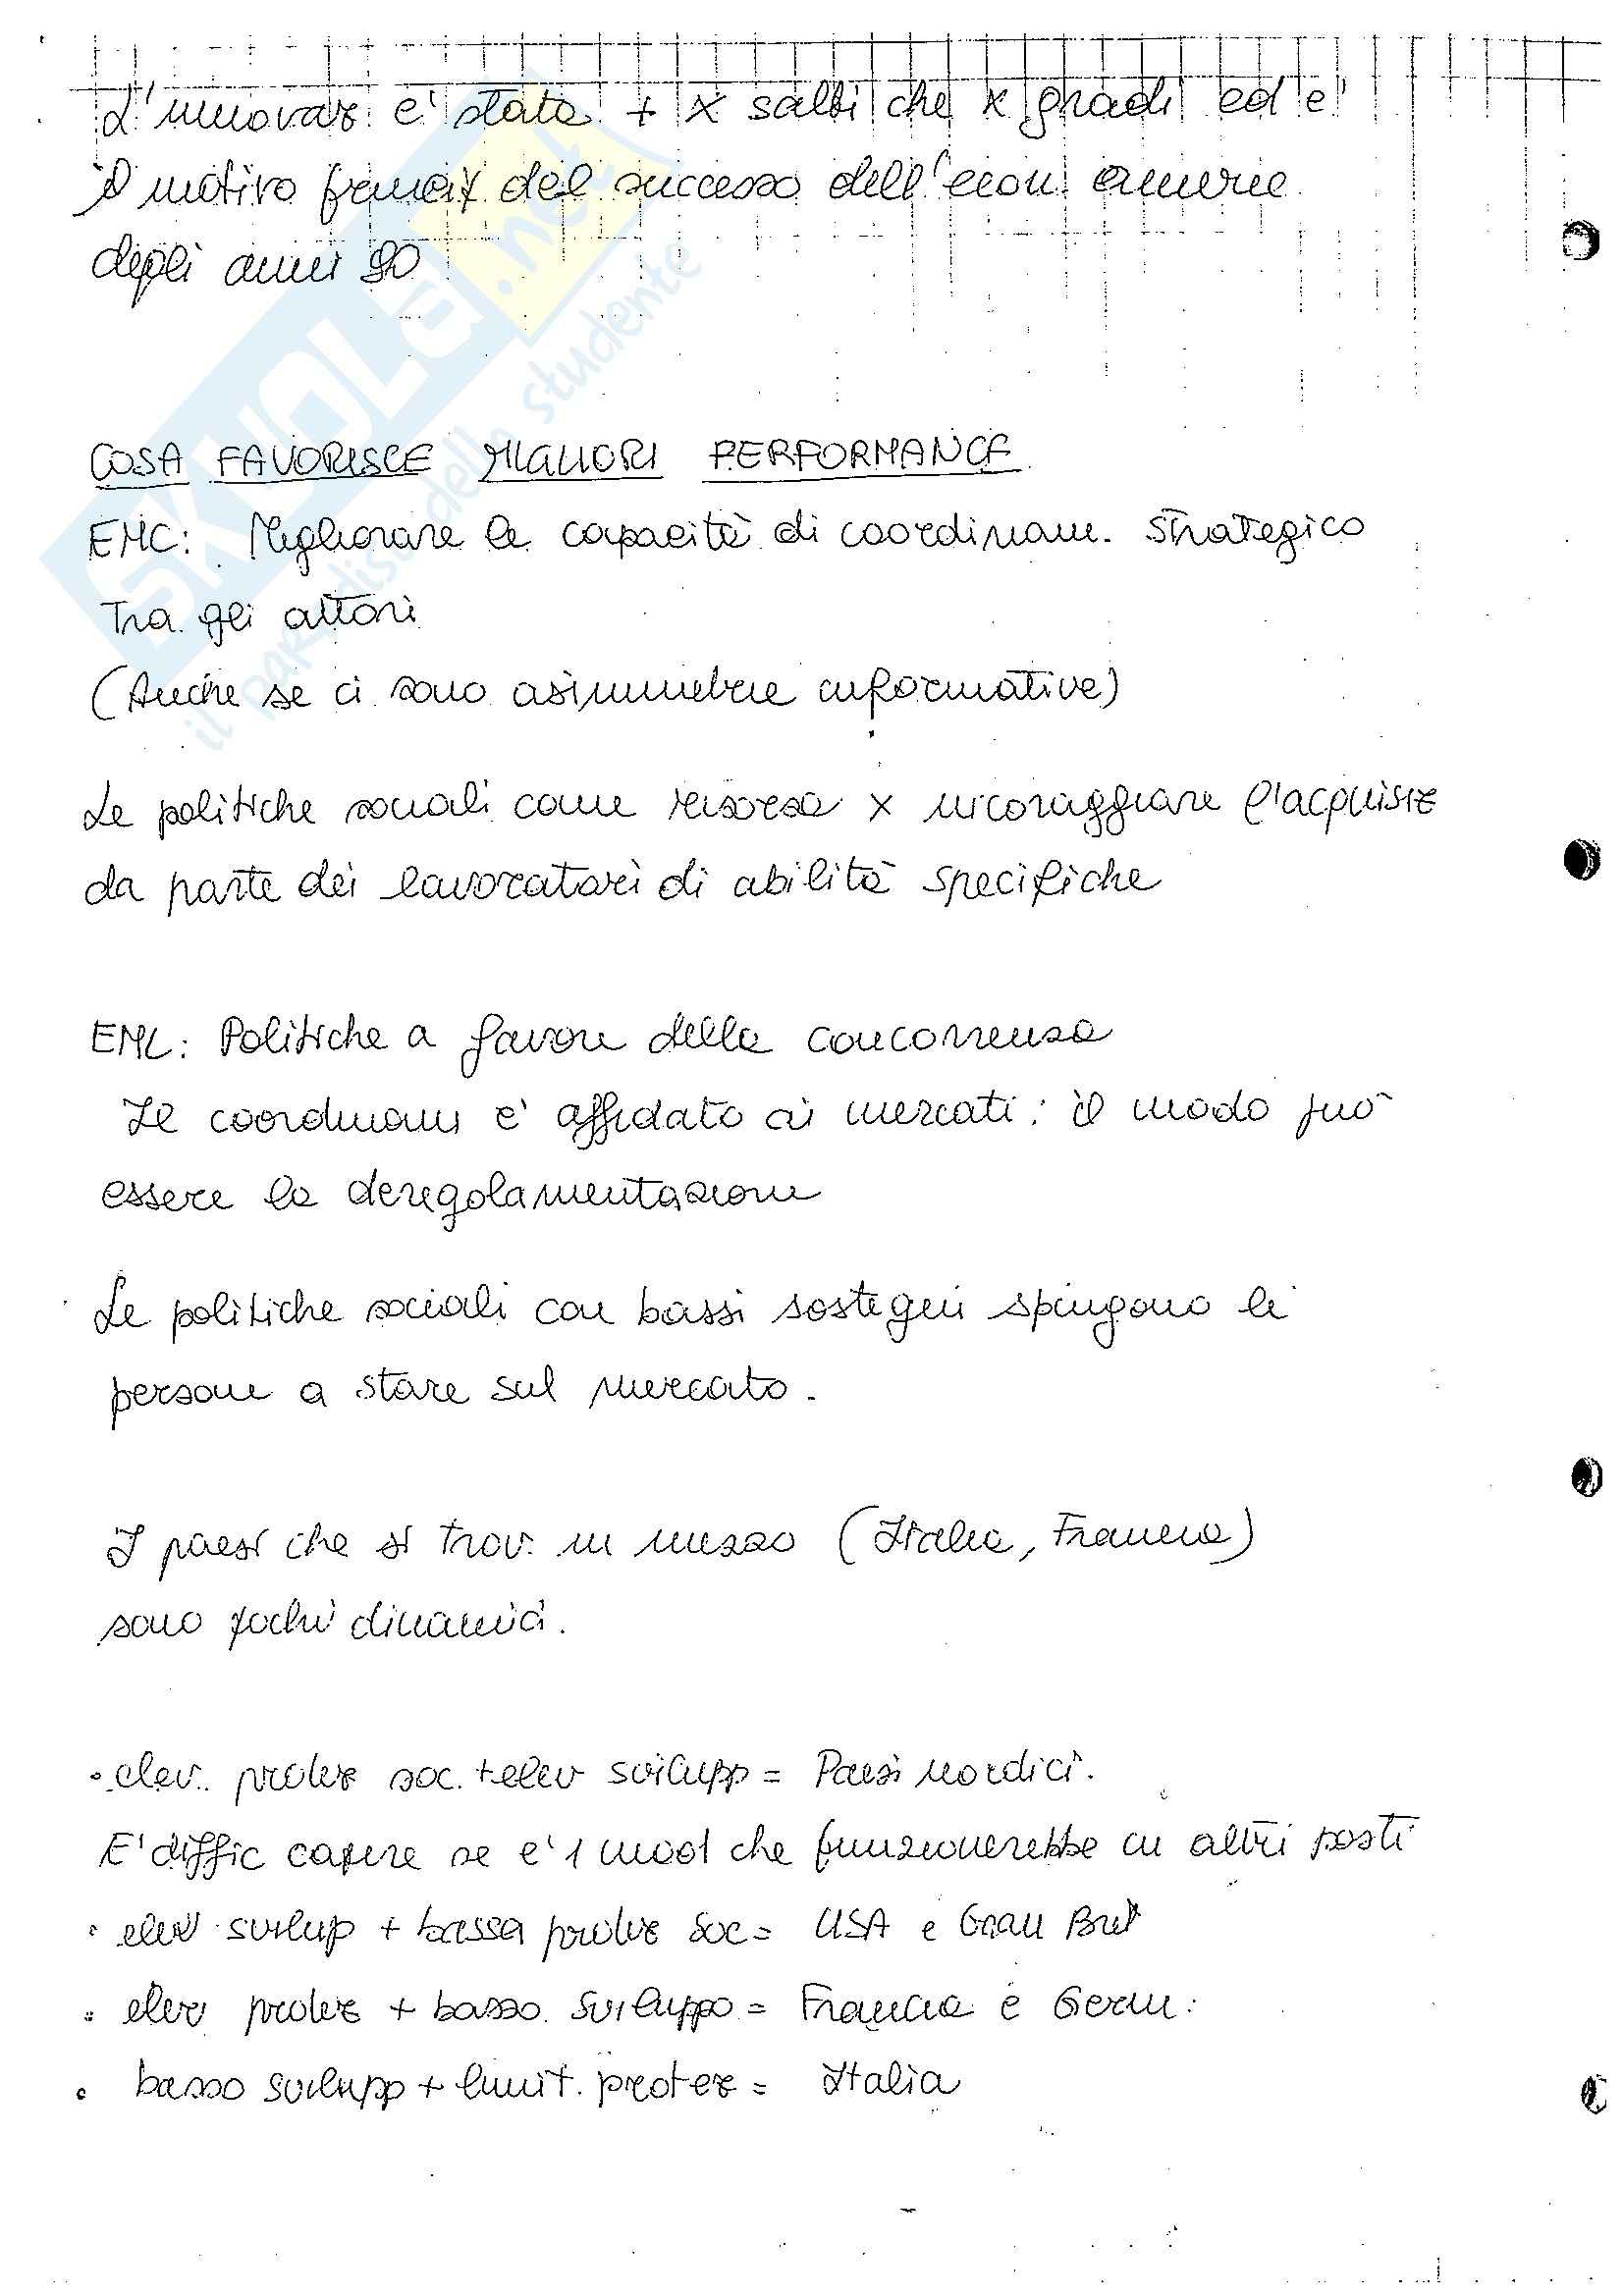 L'innovaz. e' stata + x salti che x gradi ed e'
il motivo princip. del successo dell'econ. americ.
degli anni 90
COSA FAVORISCE MIGLIORI PERFORMANCE
EMC: Migliorare le capacità di coordinam. strategico
Tra gli attori
(Anche se ci sono asimmetrie informative)
Le politiche sociali come risorsa x incoraggiare l'acquisiz
da parte dei lavoratori di abilità specifiche
EML: Politiche a favore della concorrenza
Il coordinam e' affidato ai mercati: il modo può
essere la deregolamentazione
Le politiche sociali con bassi sostegni spingono le
persone a stare sul mercato.
I paesi che si trov. in mezzo (Italia, Francia)
sono pochi dinamici.
• elev. protez soc. + elev svilupp = Paesi nordici.
E' diffic capire se e' 1 mod che funzionerebbe in altri posti
• elev svilup + bassa protez soc = USA e Gran Bret
• elev protez + basso sviluppo = Francia e Germ.
• basso svilupp + limit. protez = Italia
SKUOLA.net
il paradiso dello studente